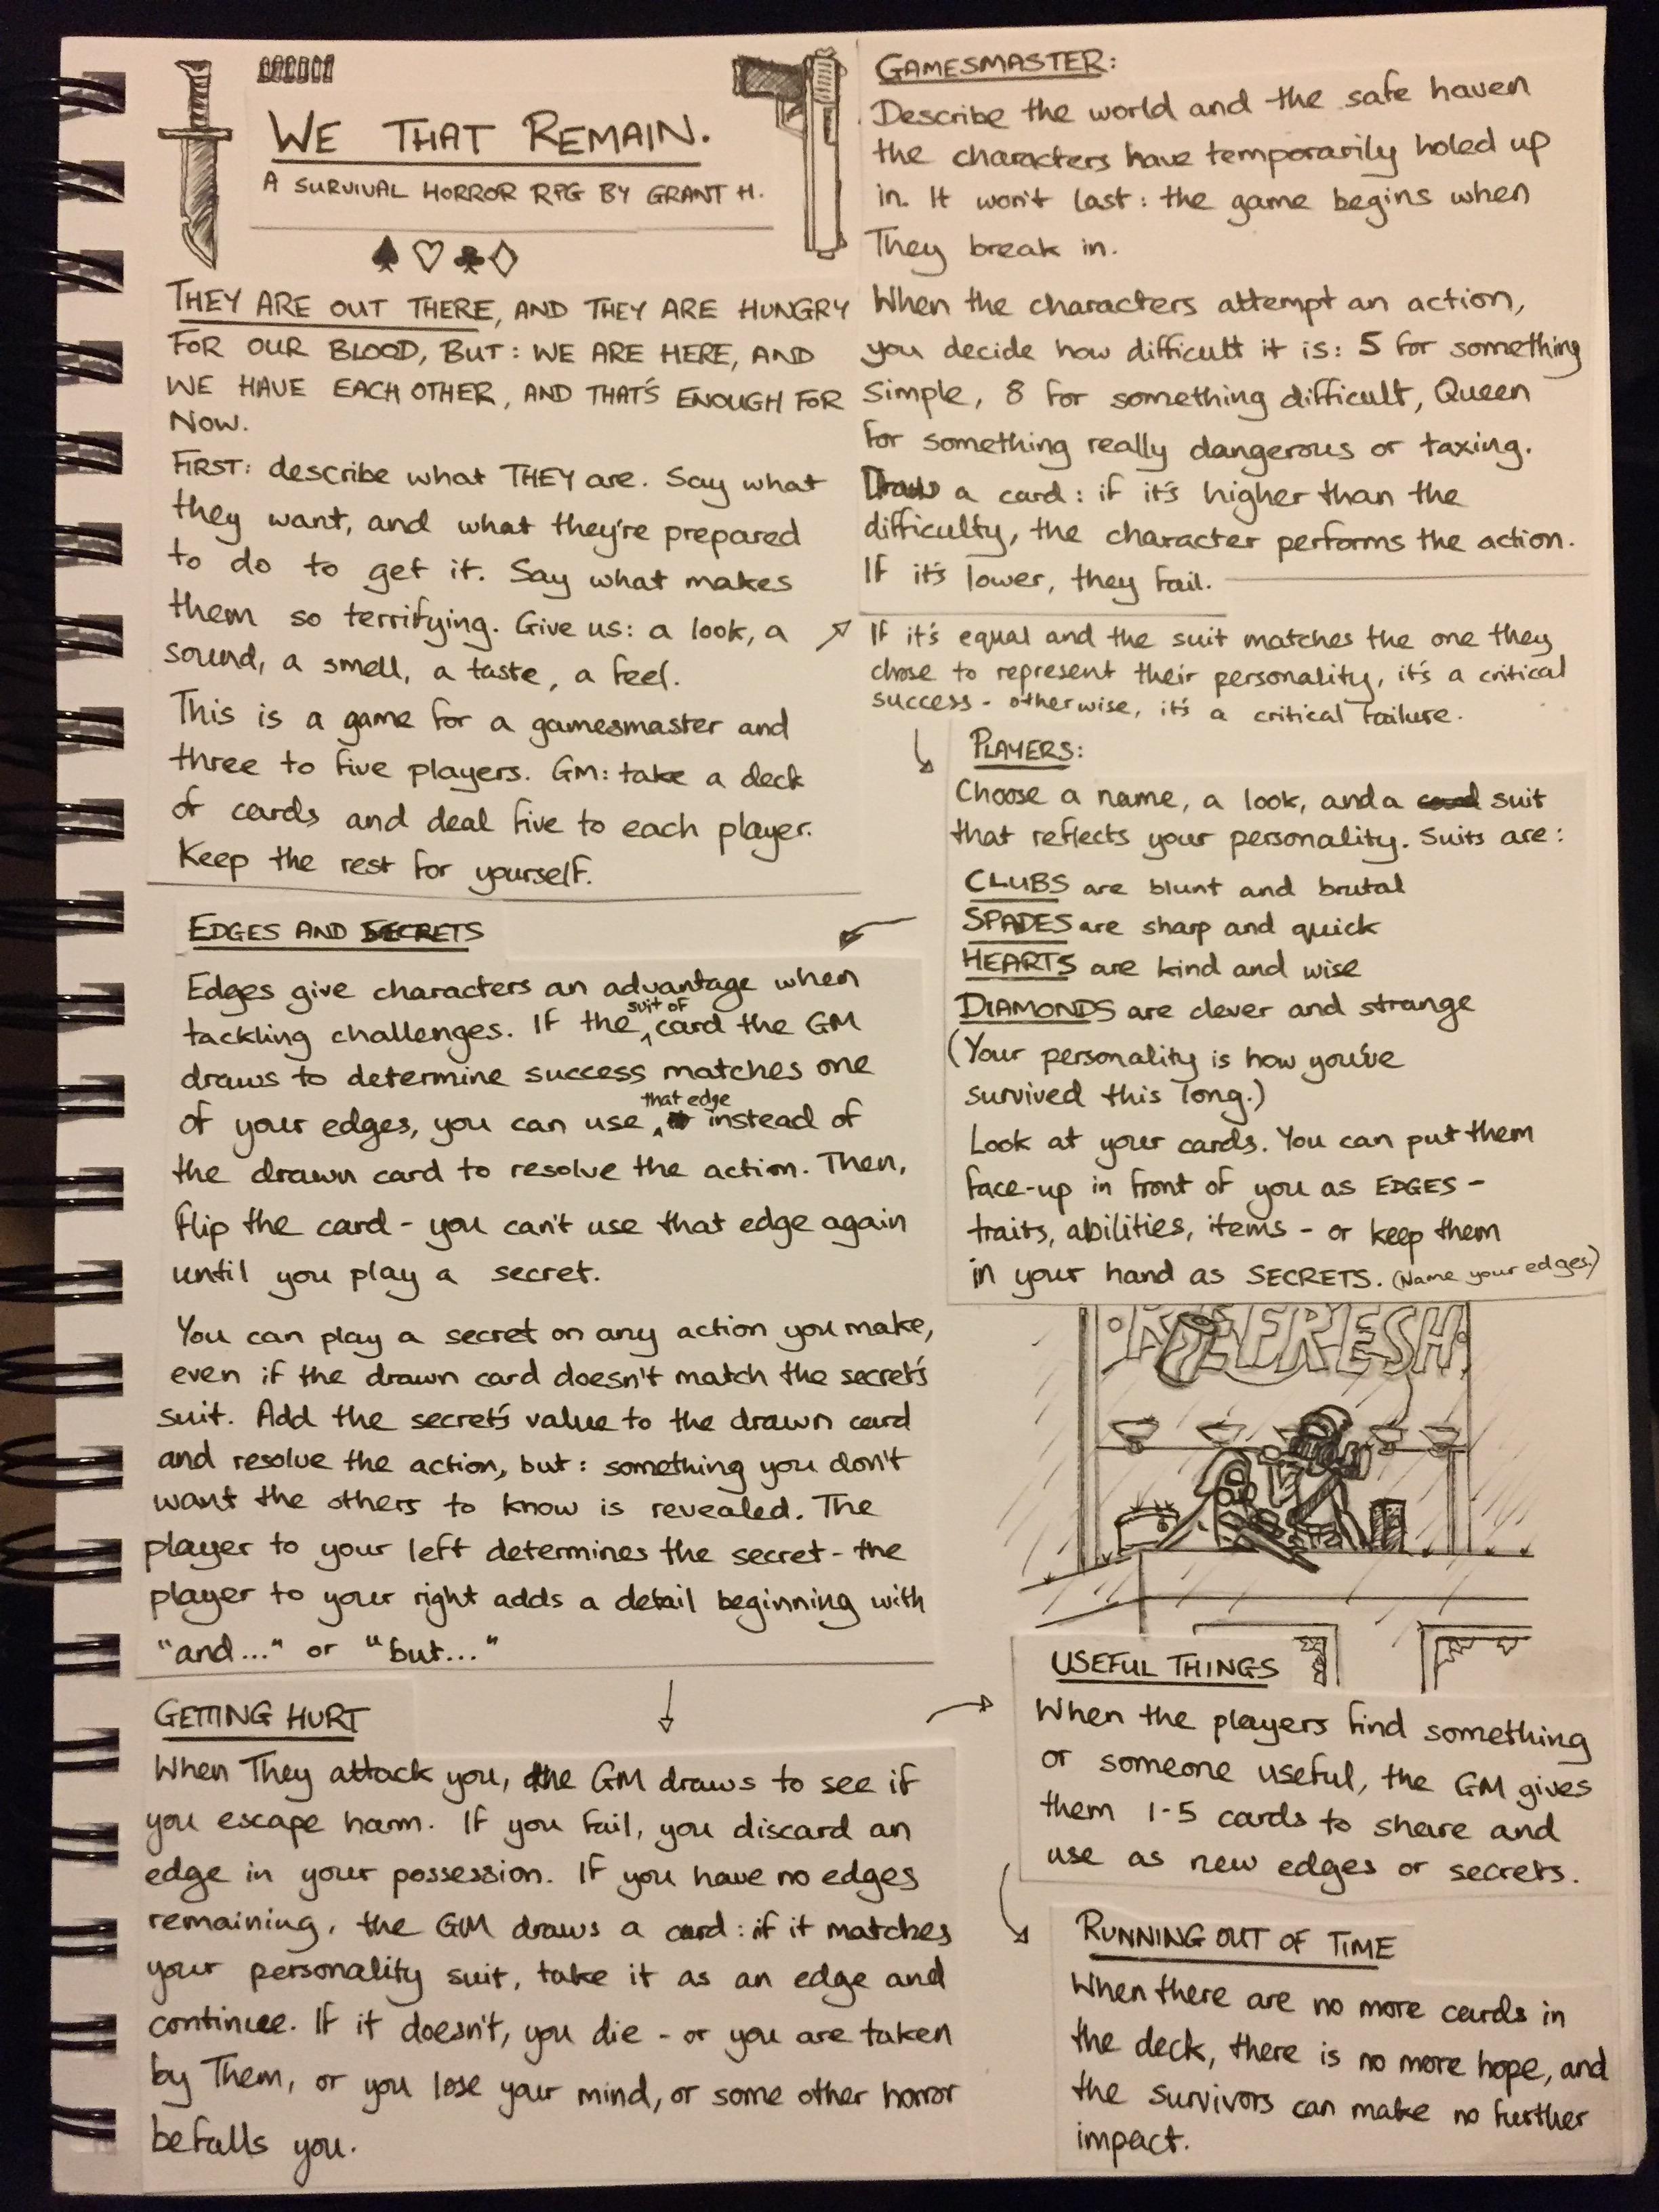 WE THAT REMAIN.
A SURVIVAL HORROR RPG BY GRANT H.
THEY ARE OUT THERE, AND THEY ARE HUNGRY
FOR OUR BLOOD, BUT: WE ARE HERE, AND
WE HAVE EACH OTHER, AND THAT'S ENOUGH FOR
NOW.
FIRST: describe what THEY are. Say what
they want, and what they're prepared
to do to get it. Say what makes
them so terrifying. Give us: a look, a
sound, a smell, a taste, a feel.
This is a game for a gamesmaster and
three to five players. GM: take a deck
of cards and deal five to each player.
Keep the rest for yourself.
GAMESMASTER:
Describe the world and the safe haven
the characters have temporarily holed up
in. It won't last: the game begins when
They break in.
When the characters attempt an action,
you decide how difficult it is: 5 for something
simple, 8 for something difficult, Queen
for something really dangerous or taxing.
Draw a card: if it's higher than the
difficulty, the character performs the action.
If it's lower, they fail.
If it's equal and the suit matches the one they
chose to represent their personality, it's a critical
success - otherwise, it's a critical failure.
PLAYERS:
Choose a name, a look, and a card suit
that reflects your personality. Suits are:
CLUBS are blunt and brutal
SPADES are sharp and quick
HEARTS are kind and wise
DIAMONDS are clever and strange
(Your personality is how you've
survived this long.)
Look at your cards. You can put them
face-up in front of you as EDGES -
traits, abilities, items - or keep them
in your hand as SECRETS. (Name your edges.)
REFRESH
EDGES AND SECRETS
Edges give characters an advantage when
tackling challenges. If the suit of card the GM
draws to determine success matches one
of your edges, you can use that edge instead of
the drawn card to resolve the action. Then,
flip the card - you can't use that edge again
until you play a secret.
You can play a secret on any action you make,
even if the drawn card doesn't match the secret's
suit. Add the secret's value to the drawn card
and resolve the action, but: something you don't
want the others to know is revealed. The
player to your left determines the secret - the
player to your right adds a detail beginning with
"and..." or "but..."
GETTING HURT
When They attack you, the GM draws to see if
you escape harm. If you fail, you discard an
edge in your possession. If you have no edges
remaining, the GM draws a card: if it matches
your personality suit, take it as an edge and
continue. If it doesn't, you die - or you are taken
by Them, or you lose your mind, or some other horror
befalls you.
USEFUL THINGS
When the players find something
or someone useful, the GM gives
them 1-5 cards to share and
use as new edges or secrets.
RUNNING OUT OF TIME
When there are no more cards in
the deck, there is no more hope, and
the survivors can make no further
impact.